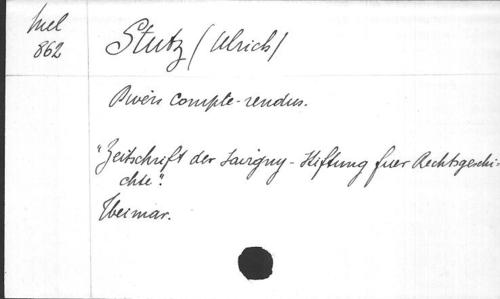 Mel
862
Stutz (Ulrich)
Divers compte-rendus.
"Zeitschrift der Savigny-Stiftung fuer Rechtsgeschi-
chte".
Weimar.